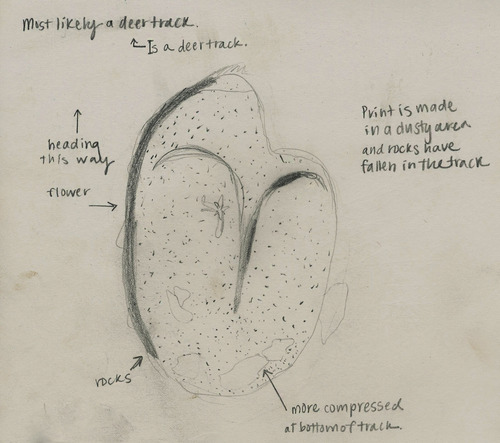 Most likely a deer track.
Is a deer track.
heading
this way
flower
Print is made
in a dusty area
and rocks have
fallen in the track
rocks
more compressed
at bottom of track.